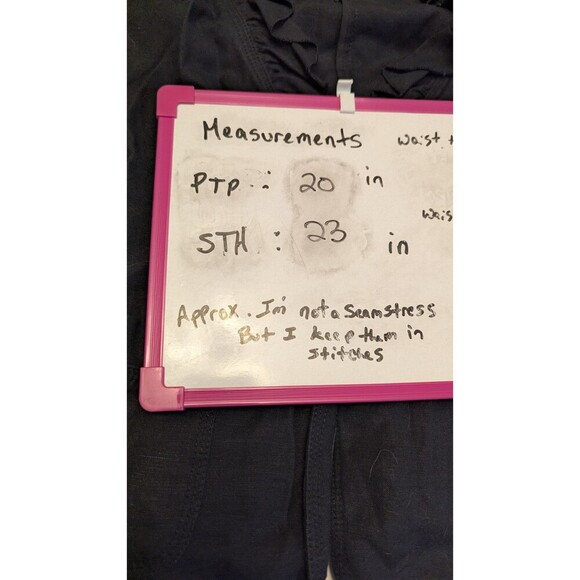 Measurements
Waist
PTP : 20 in
Wais
STH : 23 in
Approx. I'm not a Seamstress
But I keep them in
stitches